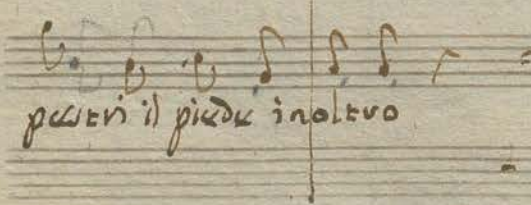 pestri il piede inoltro